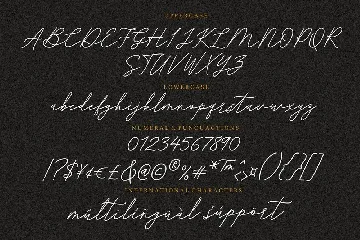 UPPERCASE
ABCDEFGHIJKLMNOPQR
STUVWXYZ
LOWERCASE
abcdefghijklmnopqrstuvwxyz
NUMERAL & PUNCUACTIONS
01234567890
!?$¥€£&@©®%#*™^¤(){}[]
INTERNATIONAL CHARACTERS
multilingual support